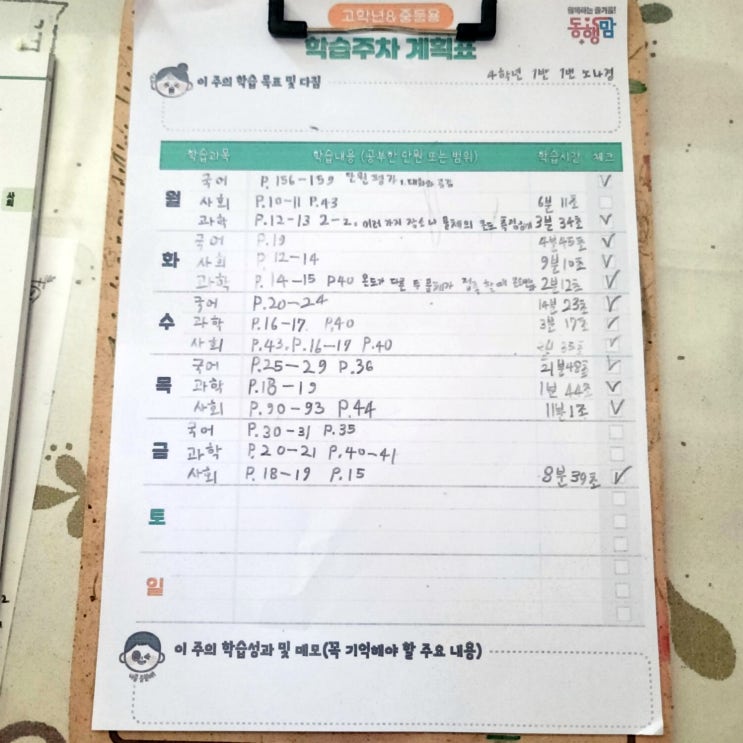 고학년&중등용
함께하는 즐거움!
동행맘
학습주차 계획표
4학년 1반 1번 노나경
이 주의 학습 목표 및 다짐
학습과목 학습내용 (공부한 단원 또는 범위) 학습시간 체크
월 국어 P.156-159 단원평가 ✓
사회 P.10-11 P.43 6분 11초
과학 P.12-13 2-2. 여러 가지 장소나 물체의 온도 측정하기 3분 34초 ✓
화 국어 P.19 4분45초 ✓
사회 P.12-14 9분10초 ✓
과학 P.14-15 P40 온도가 다른 두 물체가 접촉할 때 2분12초 ✓
수 국어 P.20-24 14분 23초 ✓
과학 P.16-17 P.40 3분 17초 ✓
사회 P.43, P.16-17 P.40 35초 ✓
목 국어 P.25-29 P.36 21분48초 ✓
과학 P.18-19 1분 44초 ✓
사회 P.90-93 P.44 11분1초 ✓
금 국어 P.30-31 P.35
과학 P.20-21 P.40-41
사회 P.18-19 P.15 8분39초 ✓
토
일
이 주의 학습성과 및 메모(꼭 기억해야 할 주요 내용)
사회